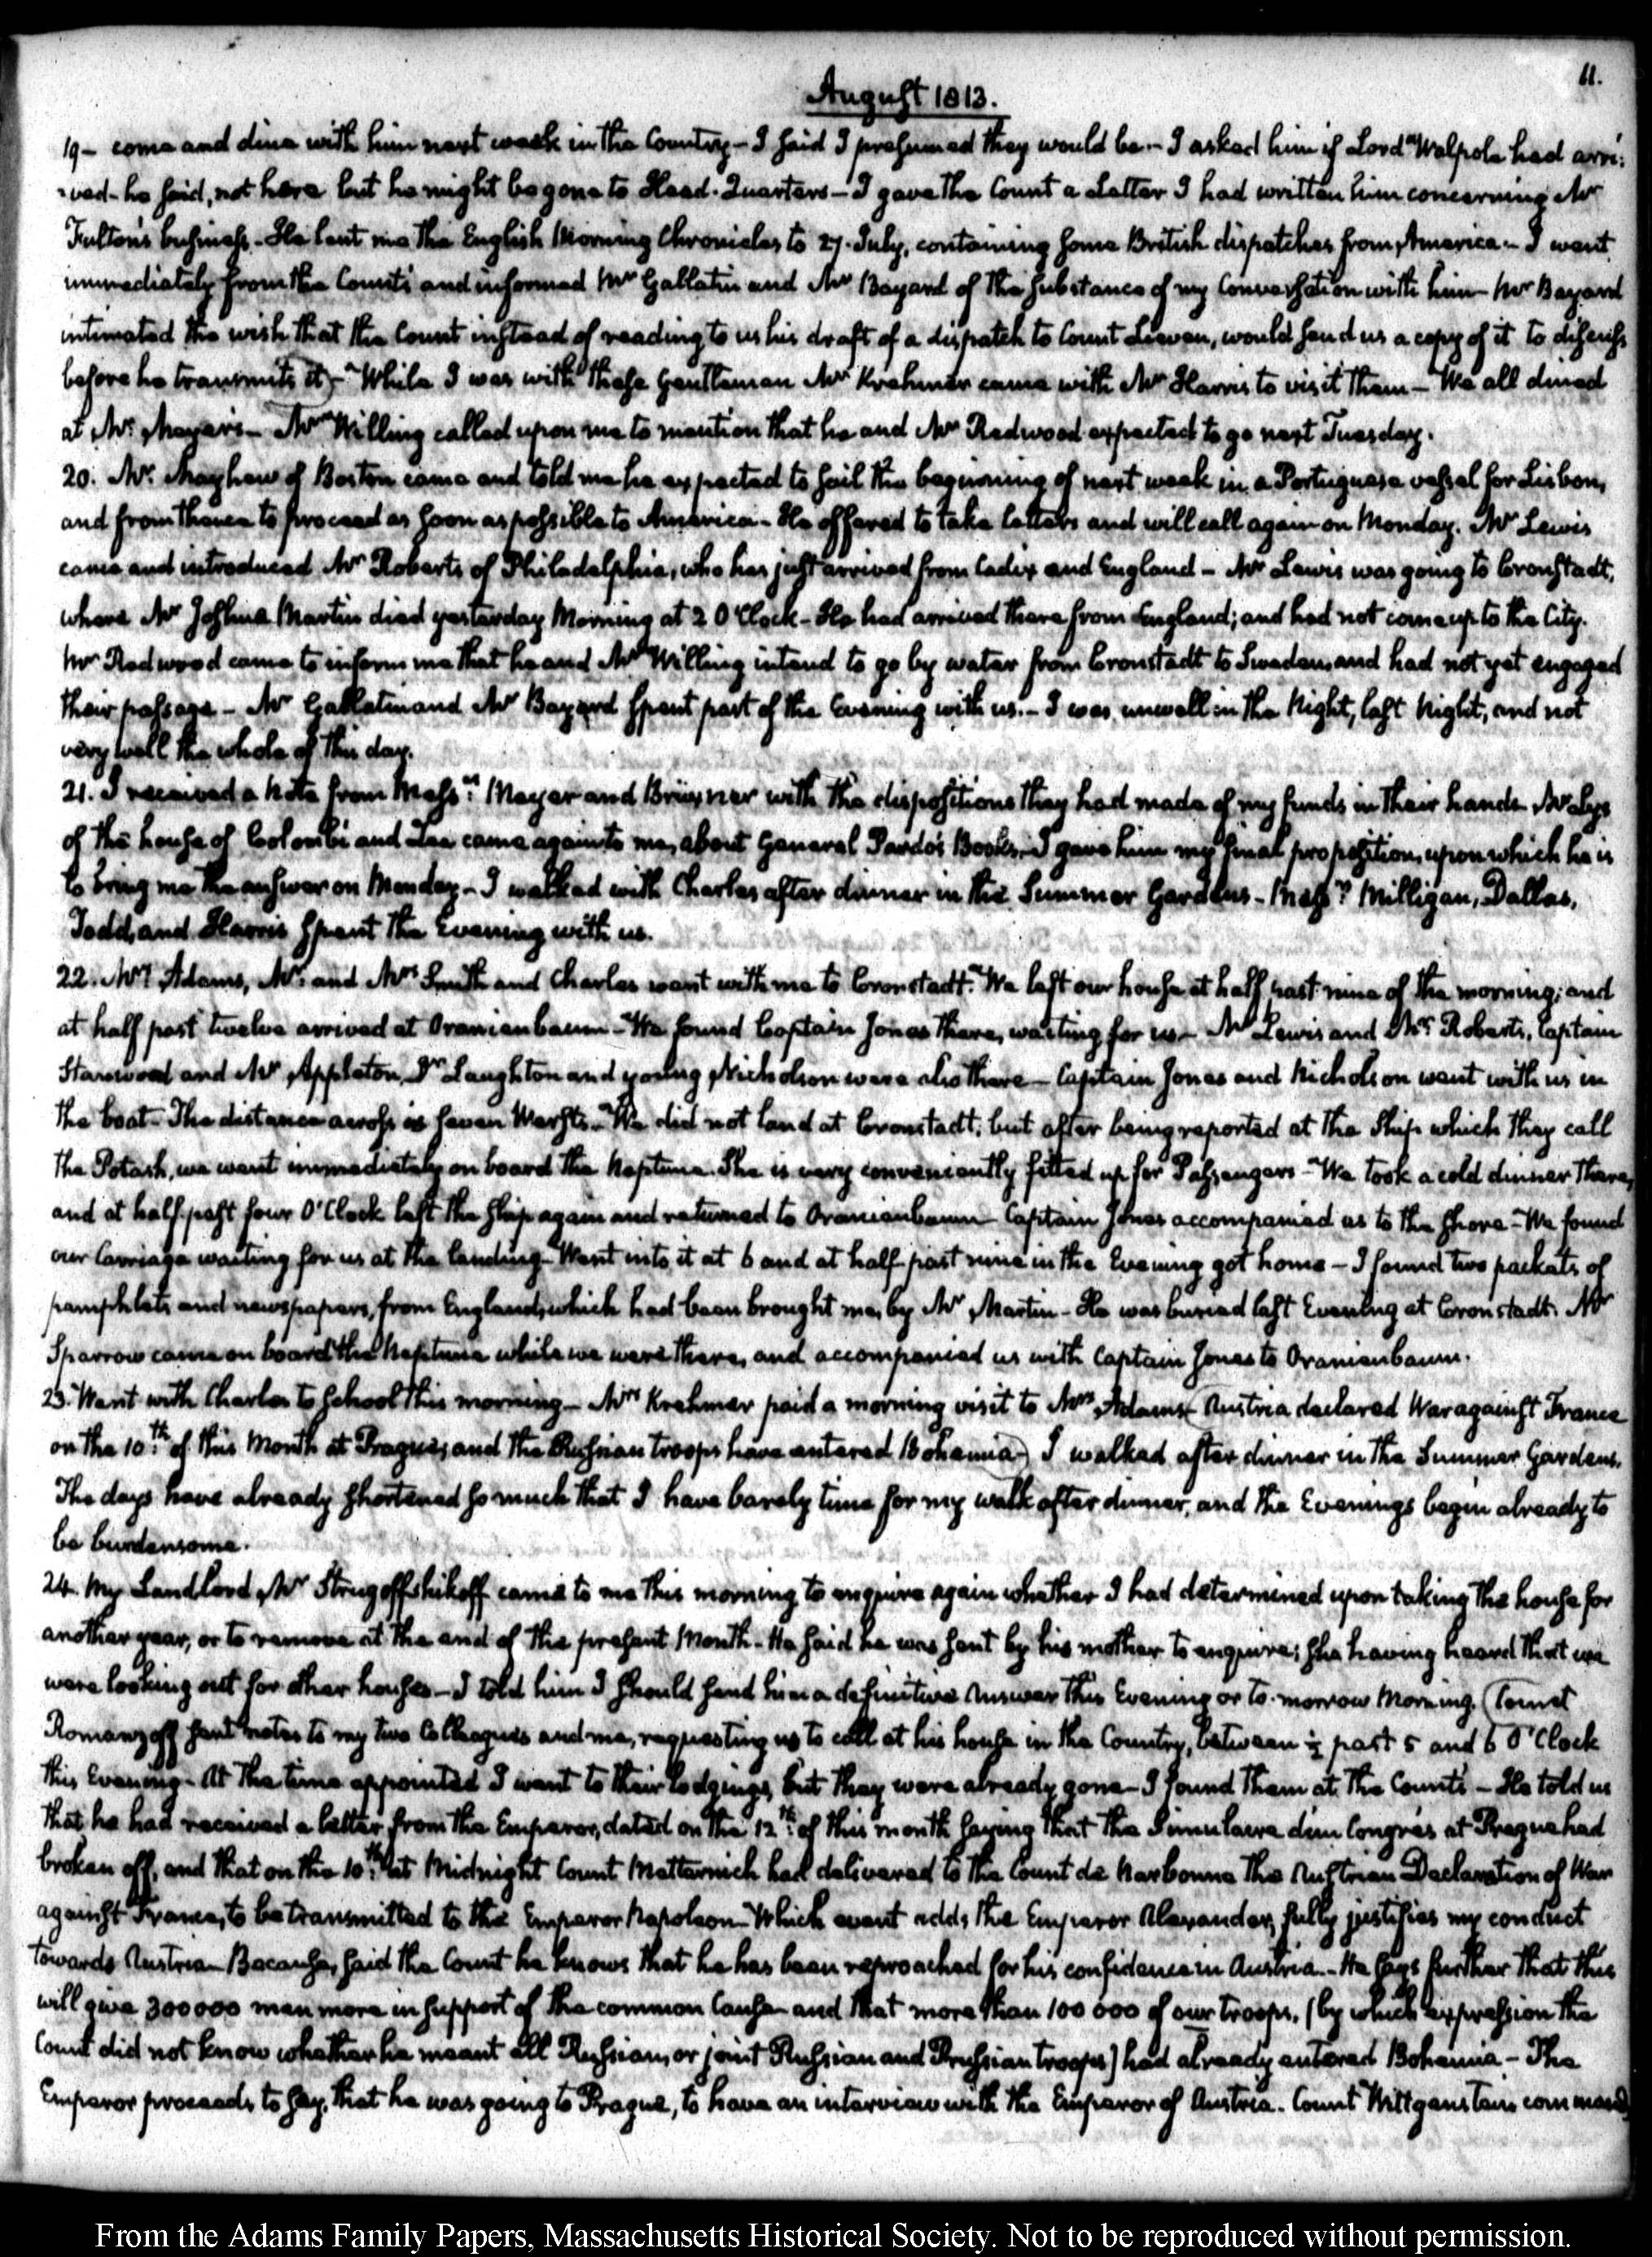 11.
August 1813.
19- come and dine with him next week in the Country- I said I presumed they would be.- I asked him if Lord Walpole had arri:
:ved- he said, not here but he might be gone to Head-Quarters- I gave the Count a Letter I had written him concerning Mr
Fulton's business.- He lent me the English Morning Chronicles to 27. July, containing some British dispatches from America.- I went
immediately from the Count's and informed Mr Gallatin and Mr Bayard of the substance of my Conversation with him- Mr Bayard
intimated the wish that the Count instead of reading to us his draft of a dispatch to Count Lieven, would send us a copy of it to discuss
before he transmits it)- While I was with these Gentlemen Mr Krehmer came with Mr Harris to visit them- We all dined
at Mr. Meyer's- Mr Willing called upon me to mention that he and Mr Redwood expected to go next Tuesday.
20. Mr. Mayhew of Boston came and told me he expected to sail the beginning of next week in a Portuguese vessel for Lisbon,
and from thence to proceed as soon as possible to America- He offered to take letters and will call again on Monday. Mr Lewis
came and introduced Mr Roberts of Philadelphia, who has just arrived from Cadix and England- Mr Lewis was going to Cronstadt,
where Mr Joshua Martin died yesterday Morning at 2 O'Clock- He had arrived there from England; and had not come up to the City.
Mr Redwood came to inform me that he and Mr Willing intend to go by water from Cronstadt to Sweden, and had not yet engaged
their passage- Mr Gallatin and Mr Bayard spent part of the Evening with us.- I was unwell in the Night, last Night, and not
very well the whole of this day.
21. I received a Note from Messrs. Meyer and Brüxner with the dispositions they had made of my funds in their hands- Mr Lys
of the house of Colombi and Zea came again to me, about General Pardo's Books.- I gave him my final proposition, upon which he is
to bring me the answer on Monday- I walked with Charles after dinner in the Summer Gardens- Messrs. Milligan, Dallas,
Todd, and Harris spent the Evening with us.
22. Mrs Adams, Mr. and Mrs Smith and Charles went with me to Cronstadt. We left our house at half past nine of the morning; and
at half past twelve arrived at Oranienbaum- We found Captain Jones there, waiting for us- Mr Lewis and Mr Roberts, Captain
Stanwood and Mr Appleton, Dr Laughton and young Nicholson were also there- Captain Jones and Nicholson went with us in
the boat- The distance across is seven Wersts- We did not land at Cronstadt; but after being reported at the Ship which they call
the Potash, we went immediately on board the Neptune. She is very conveniently fitted up for Passengers- We took a cold dinner there,
and at half past four O'Clock left the ship again and returned to Oranienbaum- Captain Jones accompanied us to the shore- We found
our Carriage waiting for us at the landing- Went into it at 6 and at half past nine in the Evening got home- I found two packets of
pamphlets and newspapers, from England, which had been brought me by Mr Martin- He was buried last Evening at Cronstadt. Mr
Sparrow came on board the Neptune while we were there, and accompanied us with Captain Jones to Oranienbaum.
23. Went with Charles to School this morning- Mrs Krehmer paid a morning visit to Mrs Adams- (Austria declared War against France
on the 10th. of this Month at Prague; and the Russian troops have entered Bohemia) I walked after dinner in the Summer Gardens.
The days have already shortened so much that I have barely time for my walk after dinner, and the Evenings begin already to
be burdensome.
24. My Landlord, Mr Strugoffshikoff came to me this morning to enquire again whether I had determined upon taking the house for
another year, or to remove at the end of the present Month- He said he was sent by his mother to enquire; she having heard that we
were looking out for other houses- I told him I should send him a definitive Answer this Evening or to-morrow Morning. (Count
Romanzoff sent notes to my two Colleagues and me, requesting us to call at his house in the Country, between ½ past 5 and 6 O'Clock
this Evening- At the time appointed I went to their lodgings, but they were already gone- I found them at the Count's- He told us
that he had received a letter from the Emperor, dated on the 12th. of this month saying that the Simulacre d'un Congrès at Prague had
broken off, and that on the 10th. at Midnight Count Metternich had delivered to the Count de Narbonne the Austrian Declaration of War
against France, to be transmitted to the Emperor Napoleon- Which event adds the Emperor Alexander, fully justifies my conduct
towards Austria- Because, said the Count he knows that he has been reproached for his confidence in Austria.- He says further that this
will give 300 000 men more in support of the common Cause- and that more than 100 000 of our troops, (by which expression the
Count did not know whether he meant all Russians, or joint Russian and Prussian troops) had already entered Bohemia- The
Emperor proceeds to say, that he was going to Prague, to have an interview with the Emperor of Austria. Count Wittgenstein commands
From the Adams Family Papers, Massachusetts Historical Society. Not to be reproduced without permission.